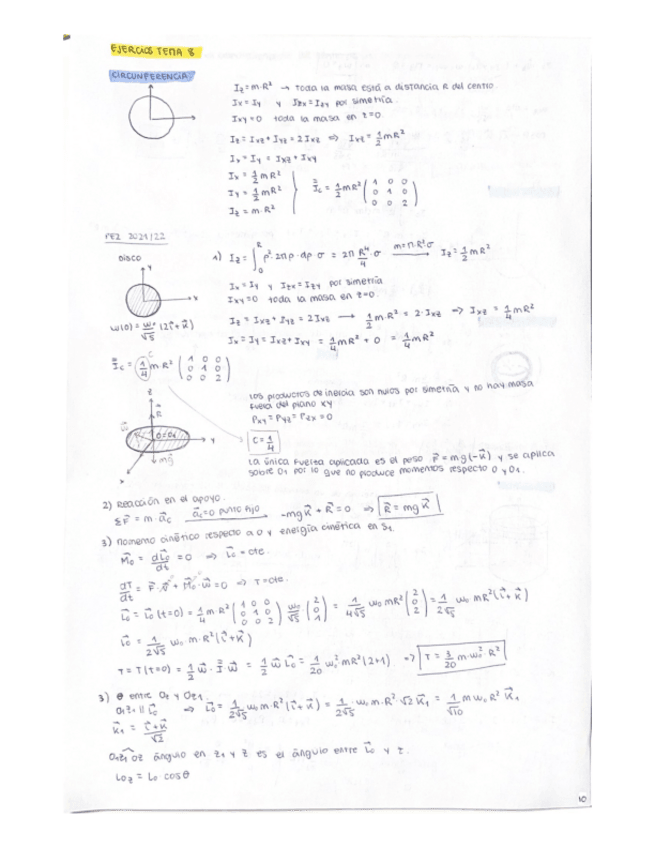 EJERCICIOS TEMA 8
CIRCUNFERENCIA.
Iz = m·R² → toda la masa está a distancia R del centro.
Ix = Iy y Ixz = Iyz por simetría.
Ixy = 0 toda la masa en z=0
Iz = Ixz + Iyz = 2Ixz ⇒ Ixz = 1/2 mR²
Ix = Iy = Ixz + Ixy
Ix = 1/2 mR²
Iy = 1/2 mR²
Iz = m·R²
Ic = 1/2 mR² (1 0 0 / 0 1 0 / 0 0 2)
PEZ 2021/22
DISCO
y
x
w(0) = w₀/√5 (2i + k)
Ic = 1/4 mR² (1 0 0 / 0 1 0 / 0 0 2)
1) Iz = ∫₀ᴿ ρ²·2πρ·dρ σ = 2π R⁴/4 σ m=π·R²σ → Iz = 1/2 mR²
Ix = Iy y Ixz = Iyz por simetría
Ixy = 0 toda la masa en z=0.
Iz = Ixz + Iyz = 2Ixz → 1/2 m·R² = 2·Ixz ⇒ Ixz = 1/4 mR²
Ix = Iy = Ixz + Ixy = 1/4 mR² + 0 = 1/4 mR²
Los productos de inercia son nulos por simetría y no hay masa
fuera del plano xy
Pxy = Pyz = Pzx = 0
C = 1/4
z
R
y
mg
x
La única fuerza aplicada es el peso F = mg(-k) y se aplica
sobre O₁ por lo que no produce momentos respecto O y O₁.
2) Reacción en el apoyo.
ΣF = m·ac ac=0 punto fijo → -mgk + R = 0 ⇒ R = mg k
3) Momento cinético respecto a O y energía cinética en S₁.
M₀ = dL₀/dt = 0 ⇒ L₀ = cte.
dT/dt = F·v + M₀·w = 0 ⇒ T = cte.
L₀ = L₀(t=0) = 1/4 m·R² (1 0 0 / 0 1 0 / 0 0 2) w₀/√5 (2 / 0 / 1) = 1/4√5 w₀ mR² (2 / 0 / 2) = 1/2√5 w₀ mR² (i + k)
L₀ = 1/2√5 w₀ m·R² (i + k)
T = T(t=0) = 1/2 w·I w = 1/2 w L₀ = 1/20 w₀² mR² (2+1) ⇒ T = 3/20 m·w₀² R²
3) θ entre Oz y Oz₁.
O₁z₁ ∥ L₀ ⇒ L₀ = 1/2√5 w₀ m·R² (i + k) = 1/2√5 · w₀ m·R² √2 k₁ = 1/√10 m w₀ R² k₁
k₁ = i+k/√2
O₁z₁ Oz ángulo en z₁ y z es el ángulo entre L₀ y z.
L₀z = L₀ cosθ
10